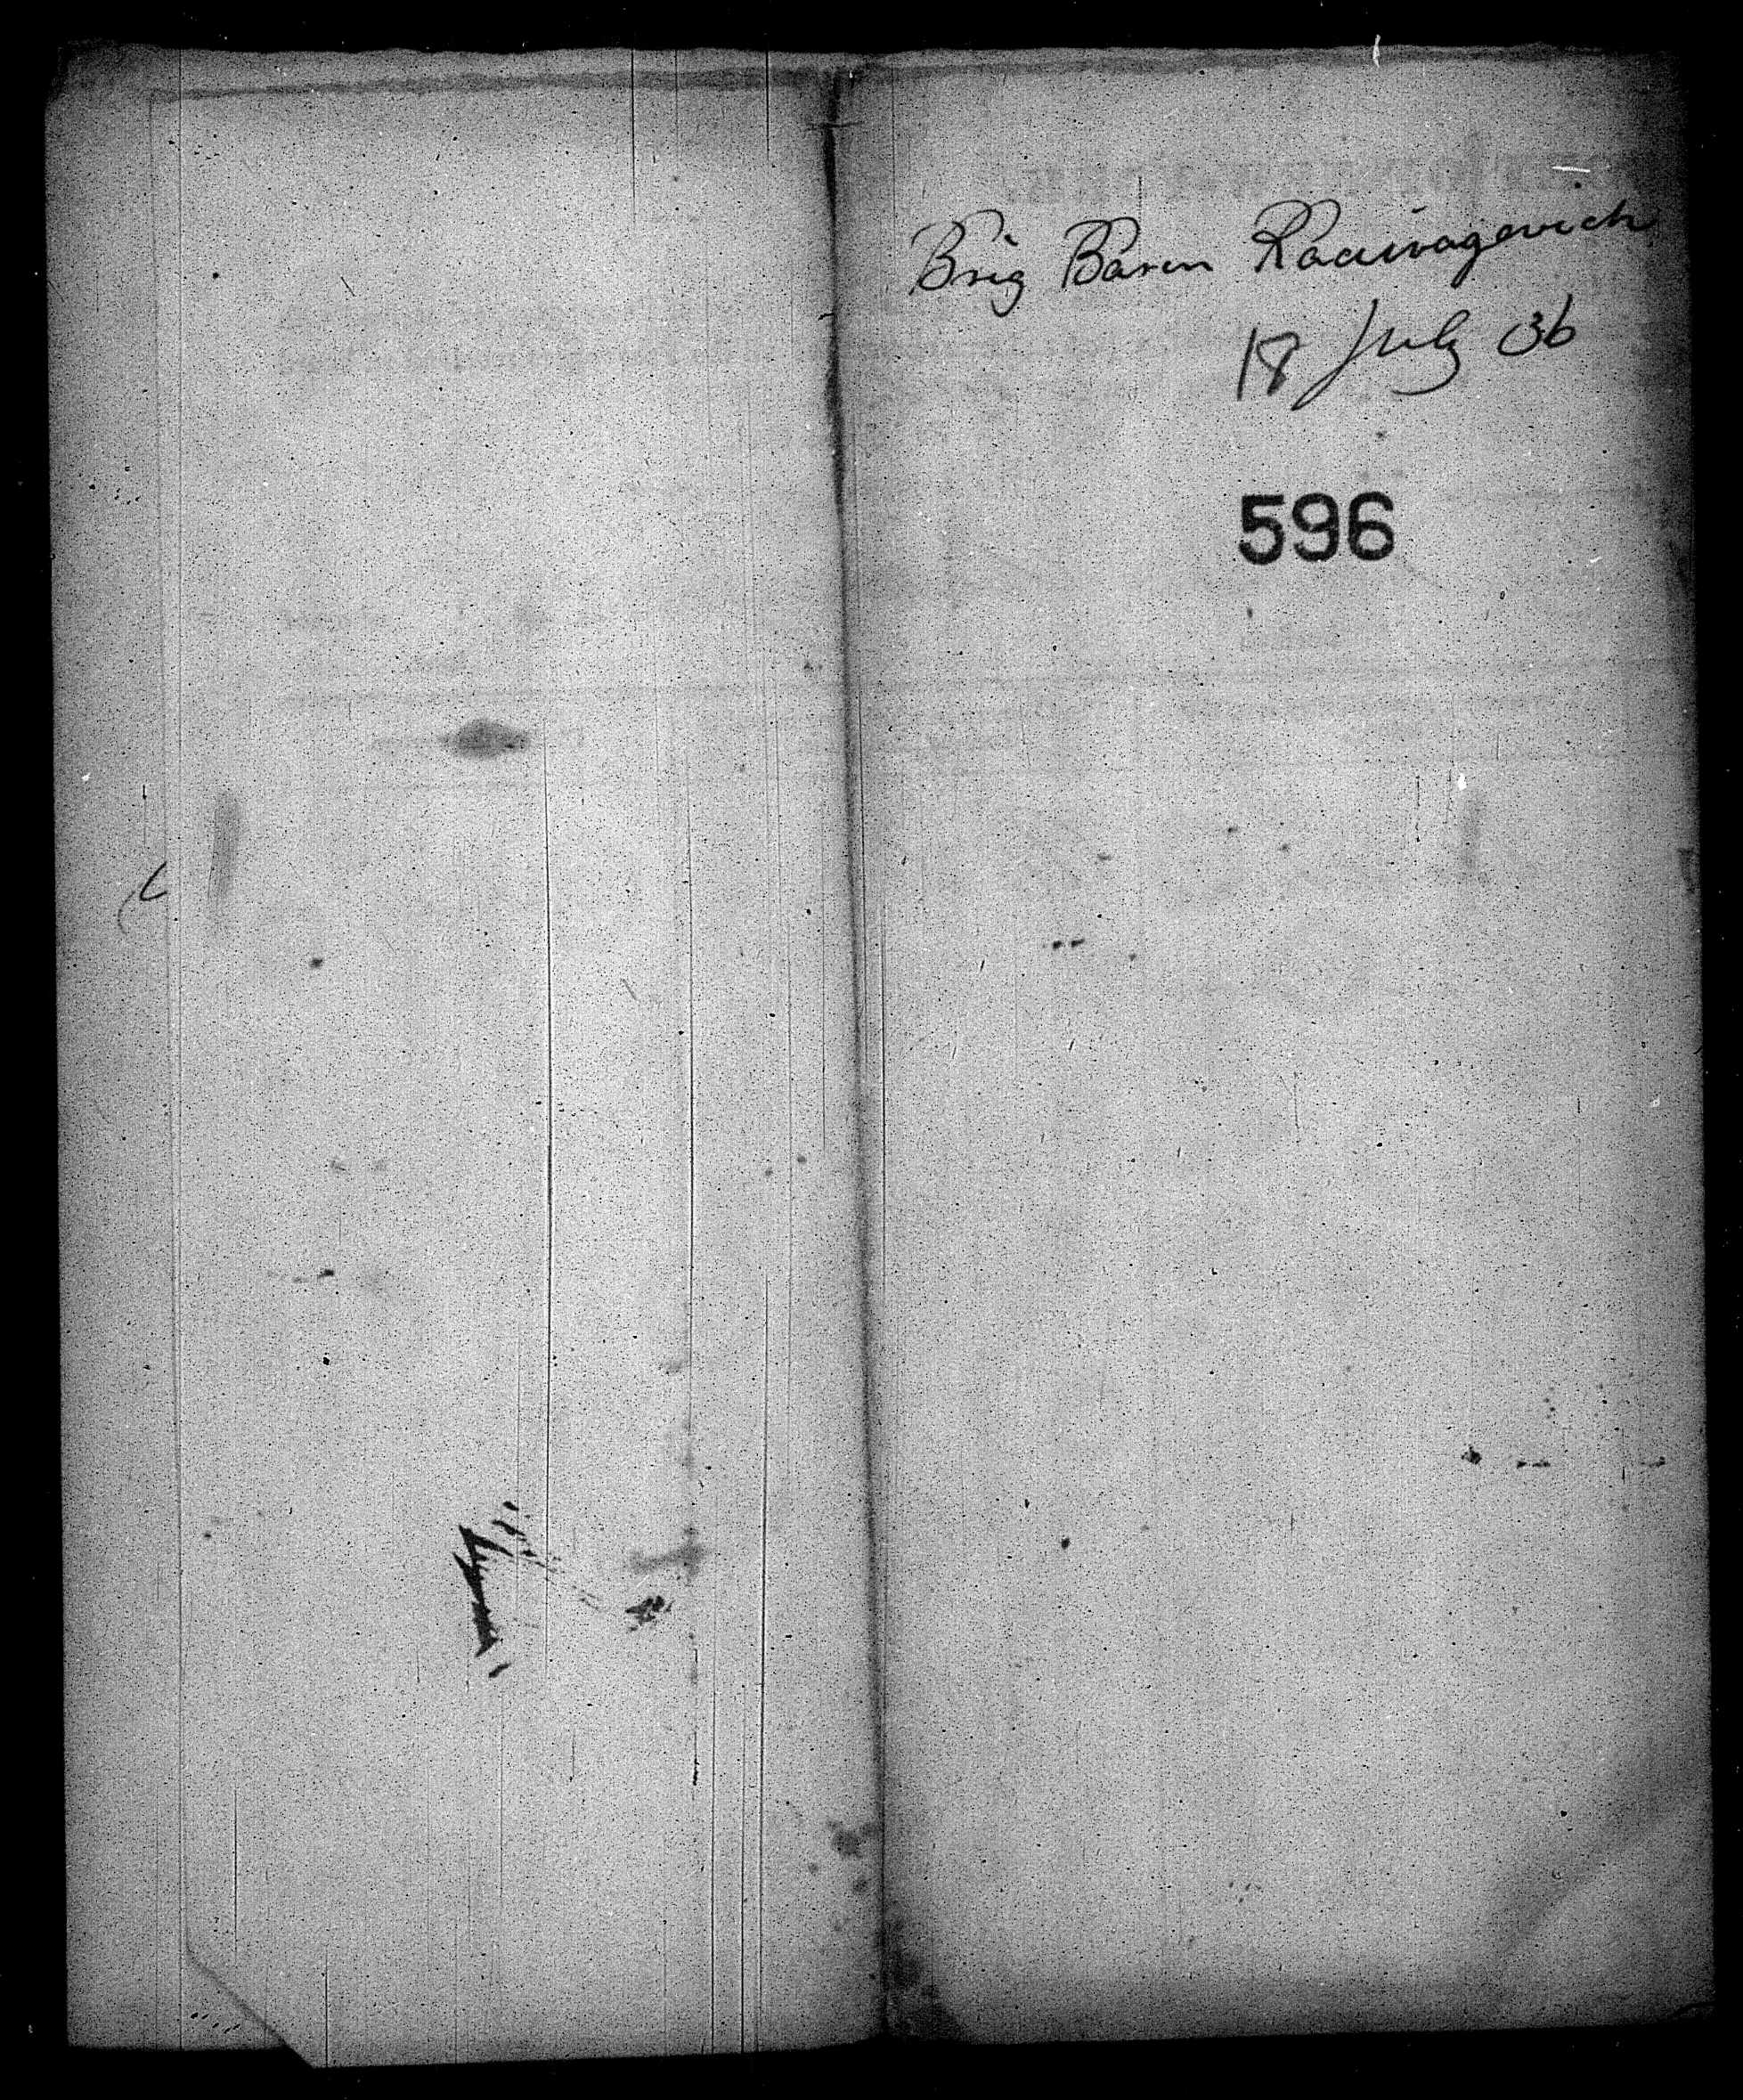 Brig Baron
18 July 36
596